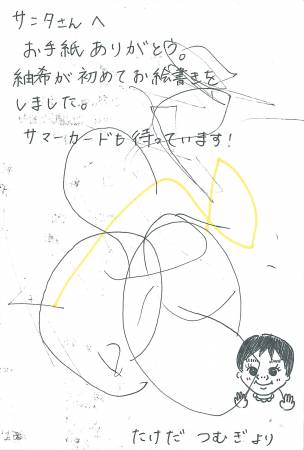 サニタさんへ
お手紙ありがとう。
紬希が初めてお絵書きを
しました。
サマーカードも待っています！
たけだ つむぎより